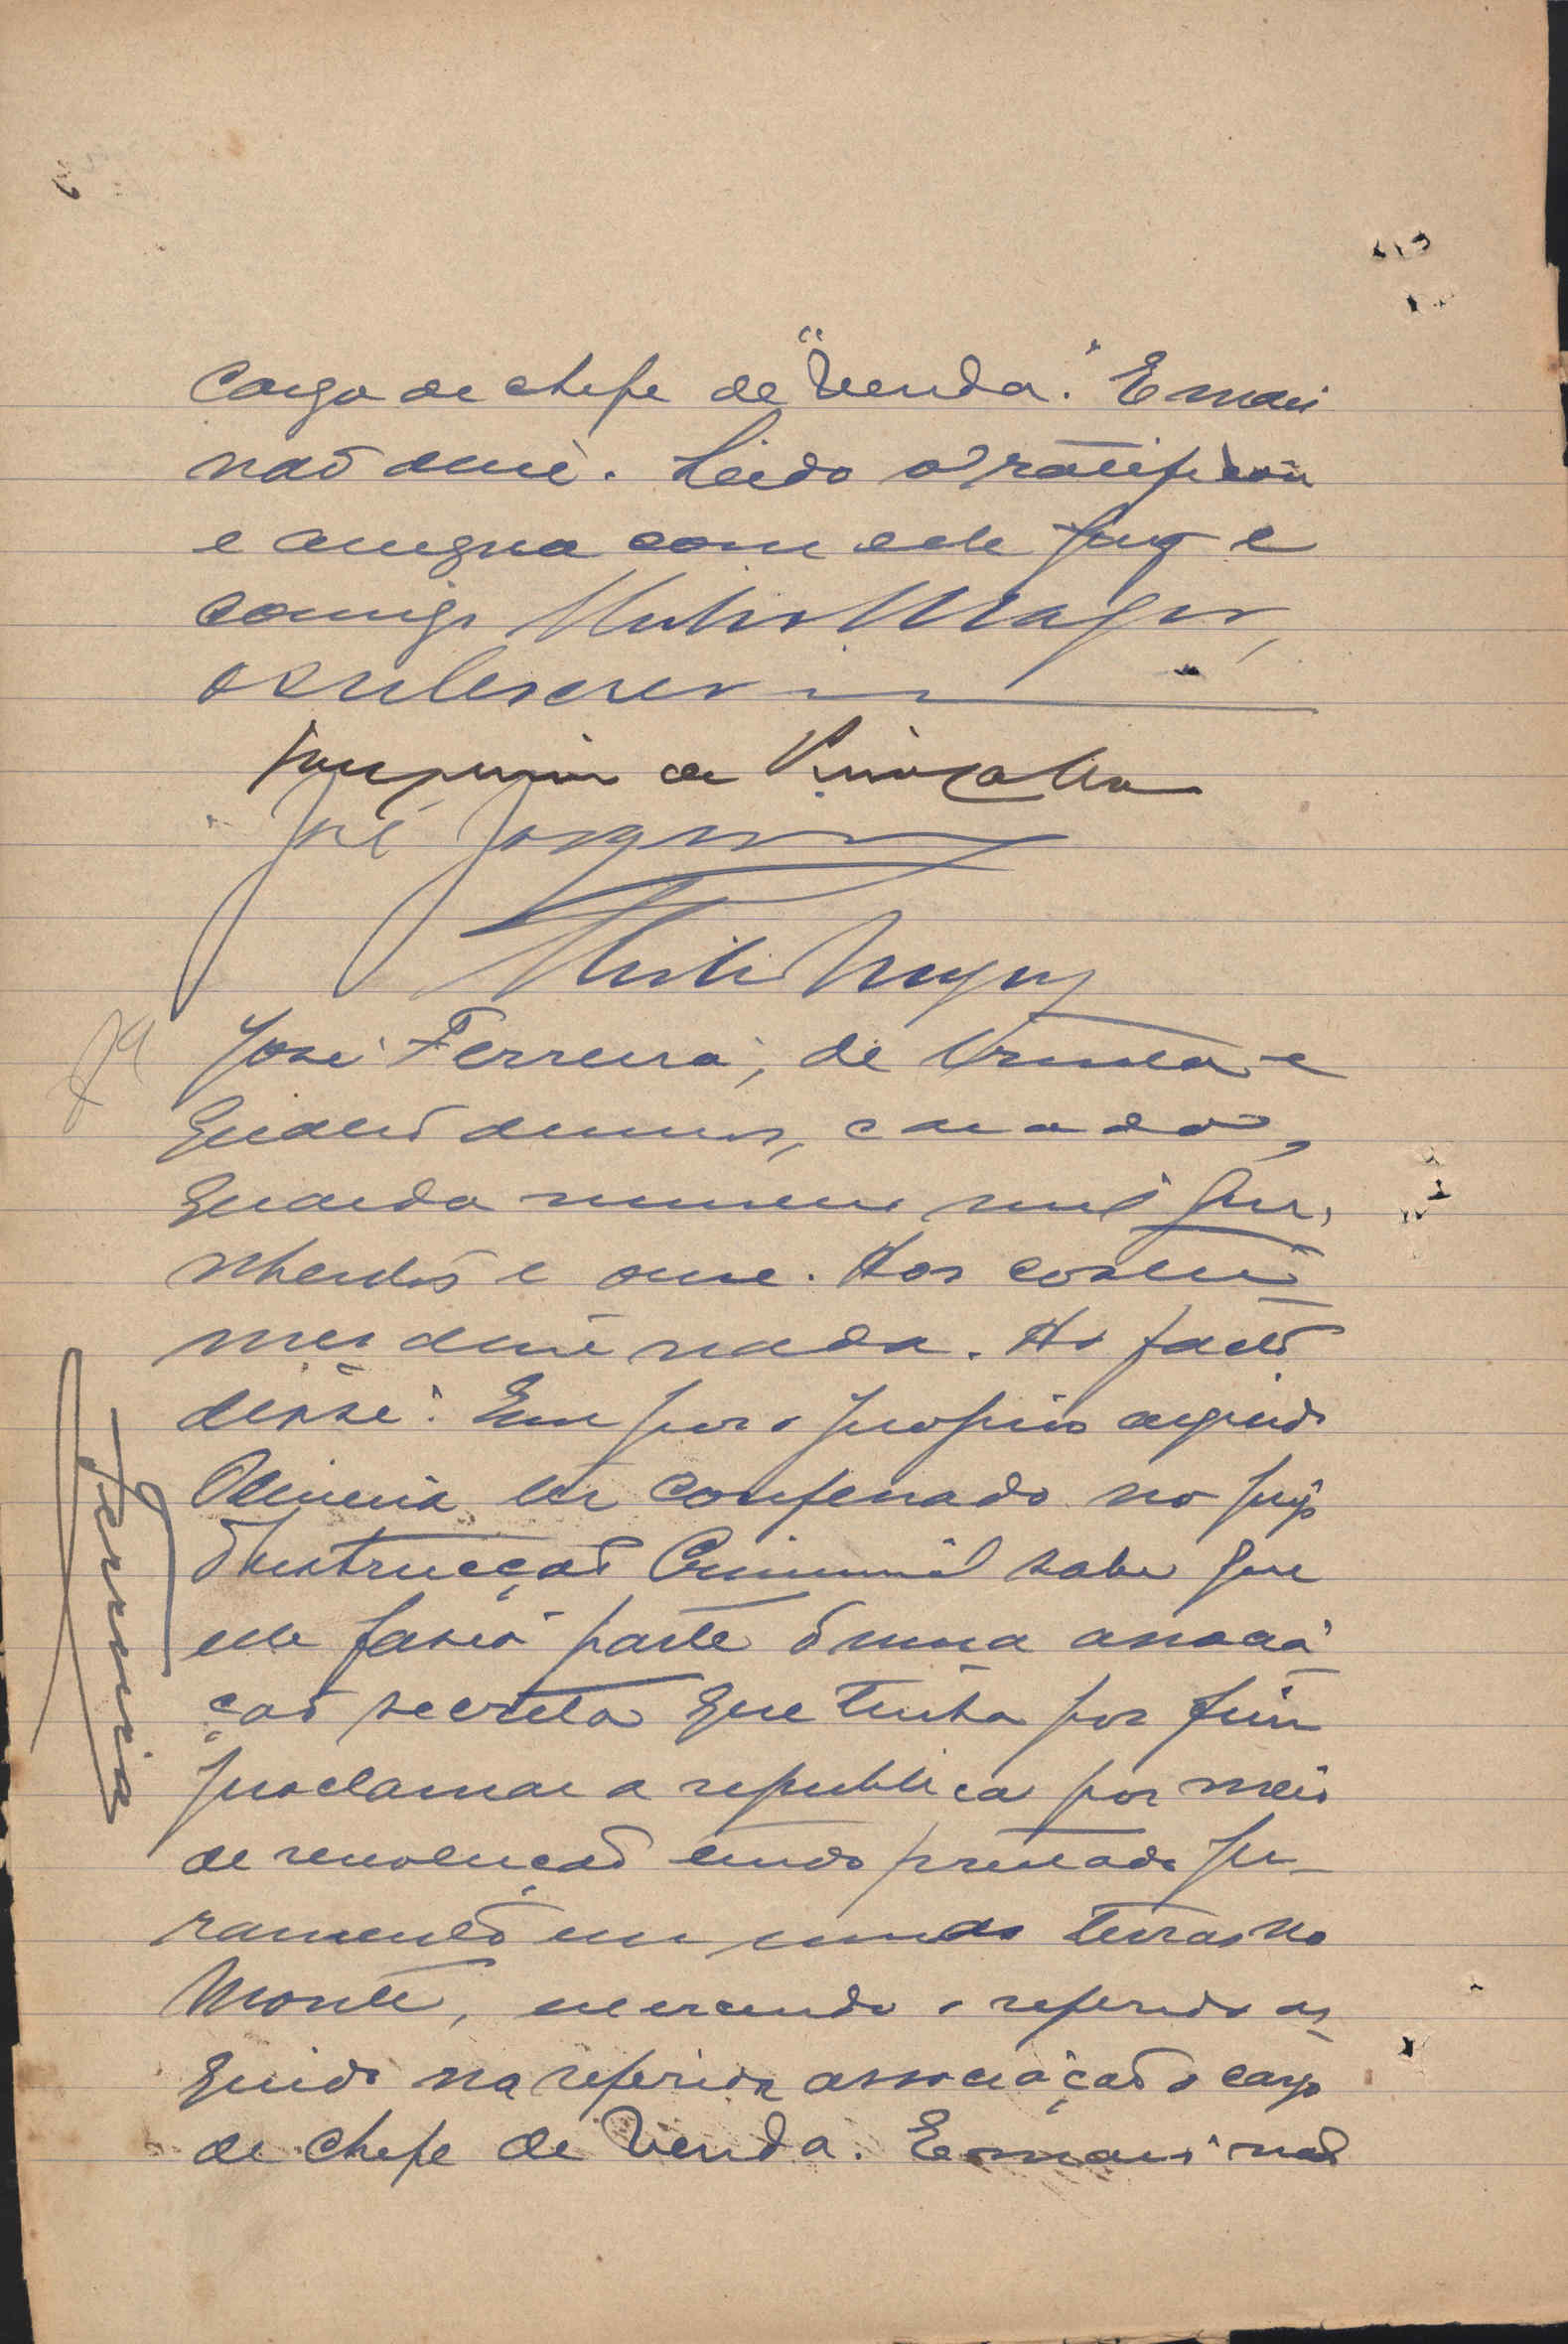 cargo de chefe de "Venda". E mais
não disse. Lido o ratificou
e assigna com elle Juiz e
comigo
o subscrevi
José Joaquim
7ª José Ferreira, de trinta e
quatro annos, casado,
guarda numero mil qui-
nhentos e onze. Aos costu-
mes disse nada. Ao facto
disse: Que por o proprio arguido
Oliveira ter confessado no Juizo
d'Instrucção Criminal sabe que
elle fazia parte d'uma associa-
ção secreta que tinha por fim
proclamar a republica por meio
de revolução tendo prestado ju-
ramento em umas terras no
Monte, exercendo o referido ar-
guido na referida associação o cargo
de chefe de Venda. E mais não
Ferreira